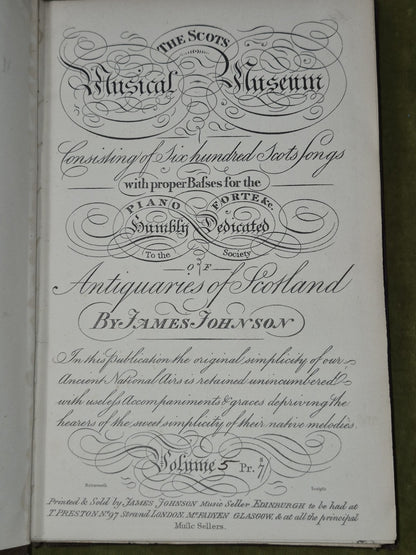 THE SCOTS
Musical Museum
Consisting of Six hundred Scots Songs
with proper Baſses for the
PIANO FORTE &c.
Humbly Dedicated
To the Society
OF
Antiquaries of Scotland
BY JAMES JOHNSON
In this Publication the original simplicity of our
Ancient National Airs is retained unincumbered
with uselefs Accompaniments & graces depriving the
hearers of the sweet simplicity of their native melodies.
Volume 5 Pr. 7/s
Printed & Sold by JAMES JOHNSON Music Seller EDINBURGH to be had at
T. PRESTON No. 97 Strand LONDON, McFADYEN GLASGOW, & at all the principal
Music Sellers.